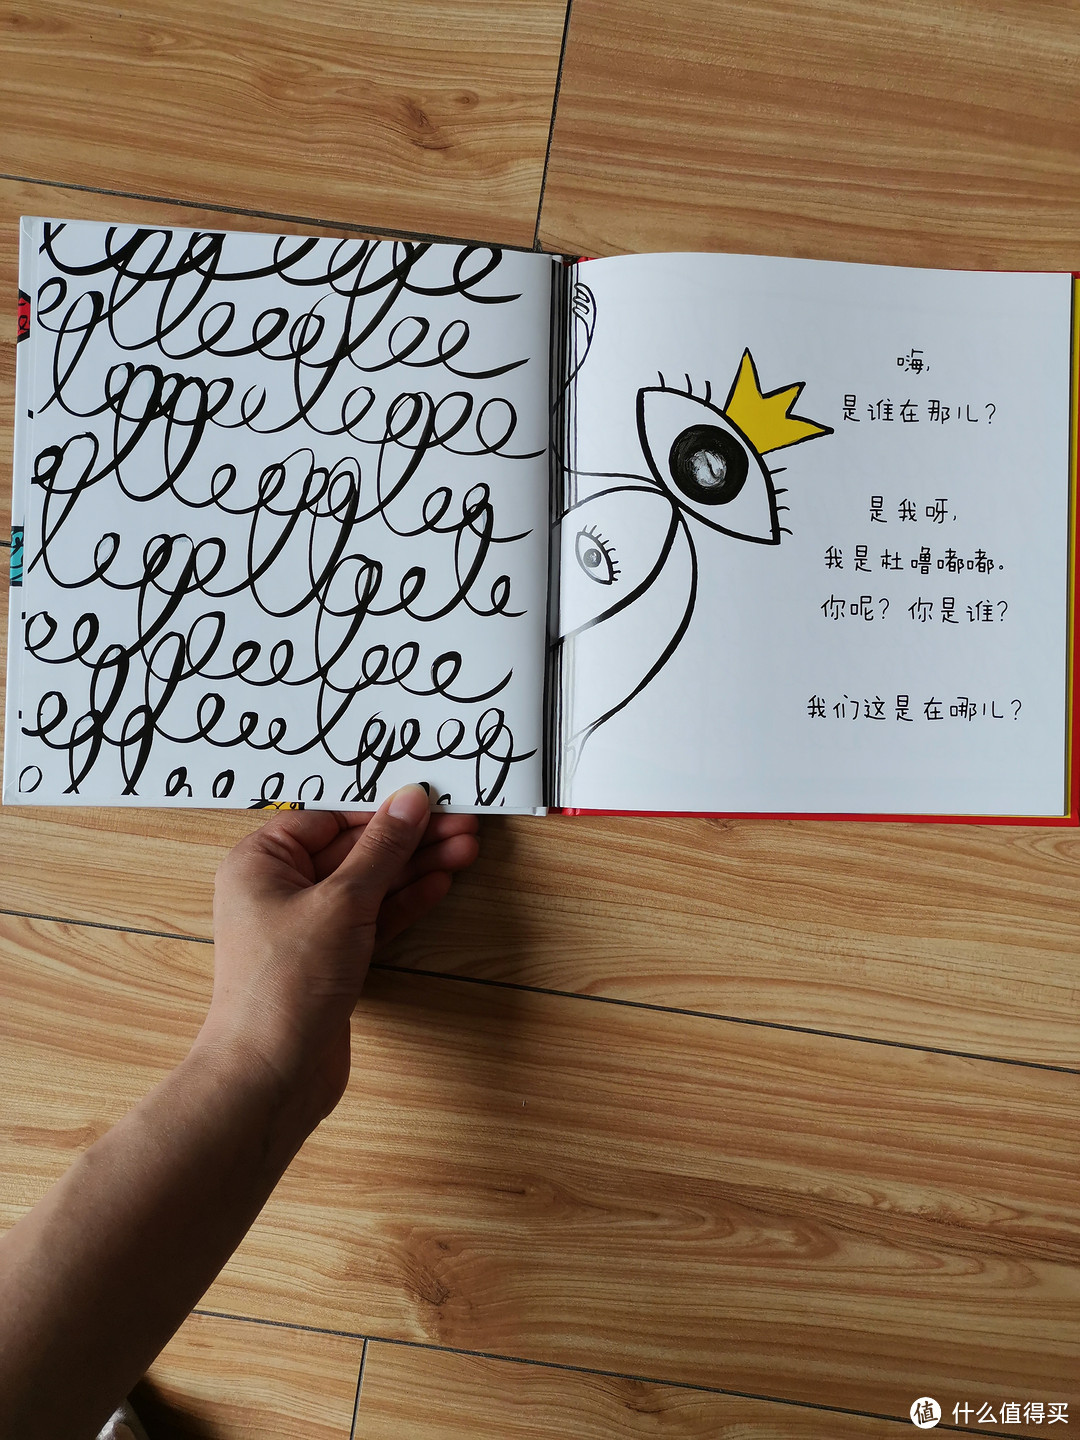 嗨，
是谁在那儿？
是我呀，
我是杜噜嘟嘟。
你呢？你是谁？
我们这是在哪儿？
值 什么值得买